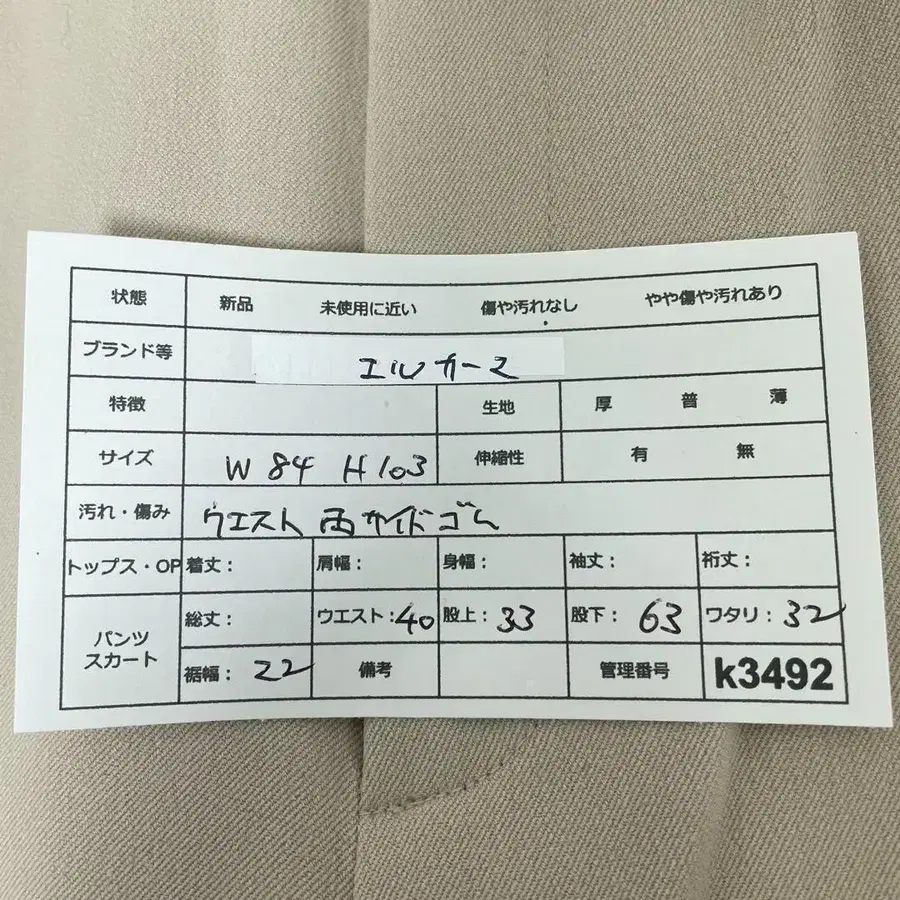 状態 新品 未使用に近い 傷や汚れなし やや傷や汚れあり
ブランド等 エルカーマ
特徴 生地 厚 普 薄
サイズ W 84 H 103 伸縮性 有 無
汚れ・傷み ウエスト 両サイドゴム
トップス・OP 着丈： 肩幅： 身幅： 袖丈： 裄丈：
パンツ スカート 総丈： ウエスト：40 股上：33 股下：63 ワタリ：32
裾幅：22 備考 管理番号 k3492